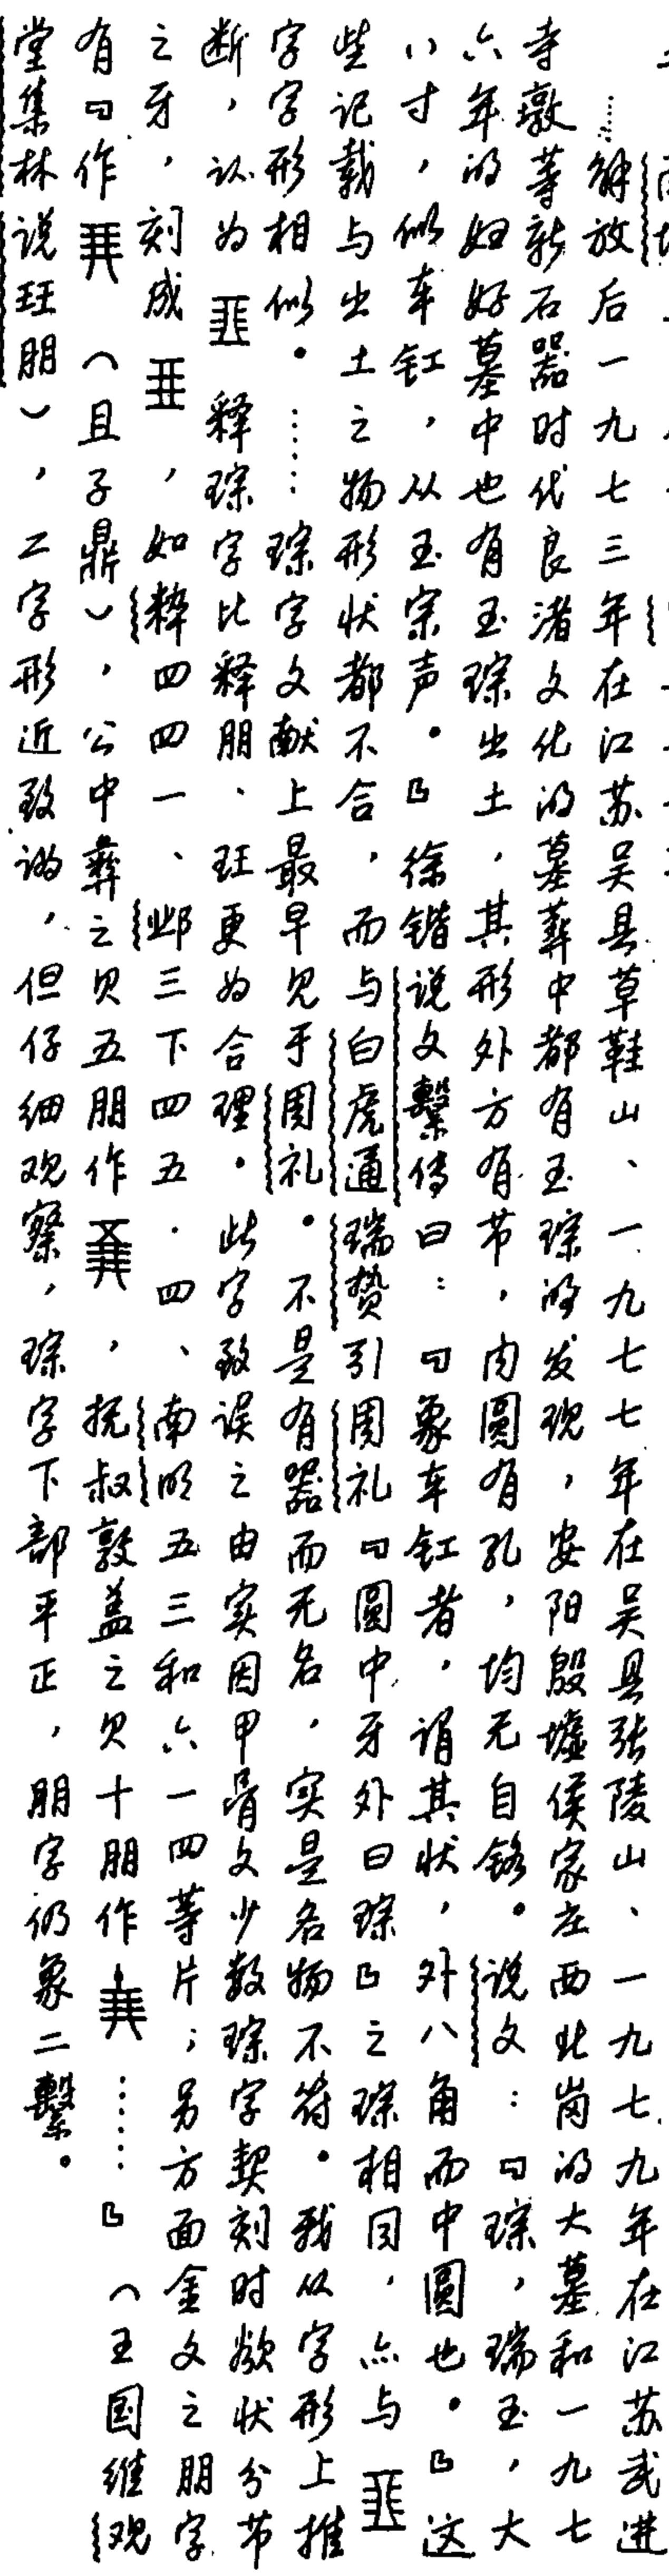 ……解放后一九七三年在江苏吴县草鞋山、一九七七年在吴县张陵山、一九七九年在江苏武进
寺墩等新石器时代良渚文化的墓葬中都有玉琮的发现，安阳殷墟侯家庄西北岗的大墓和一九七
六年的妇好墓中也有玉琮出土，其形外方有节，内圆有孔，均无自铭。说文：「琮，瑞玉，大
八寸，似车釭，从玉宗声。」徐锴说文繫传曰：「象车釭者，谓其状，外八角而中圆也。」这
些记载与出土之物形状都不合，而与白虎通瑞贽引周礼「圆中，牙外曰琮」之琮相同，亦与
字字形相似。……琮字文献上最早见于周礼。不是有器而无名，实是名物不符。我从字形上推
断，认为释琮字比释朋、玨更为合理。此字致误之由实因甲骨文少数琮字契刻时欲状分节
之牙，刻成，如粹四四一、邺三下四五·四、南明五三和六一四等片；另方面金文之朋字
有「作（且子鼎），公中彝之贝五朋作，抚叔敦盖之贝十朋作……」（王国维观
堂集林说玨朋），二字形近致讹，但仔细观察，琮字下部平正，朋字仍象二繫。